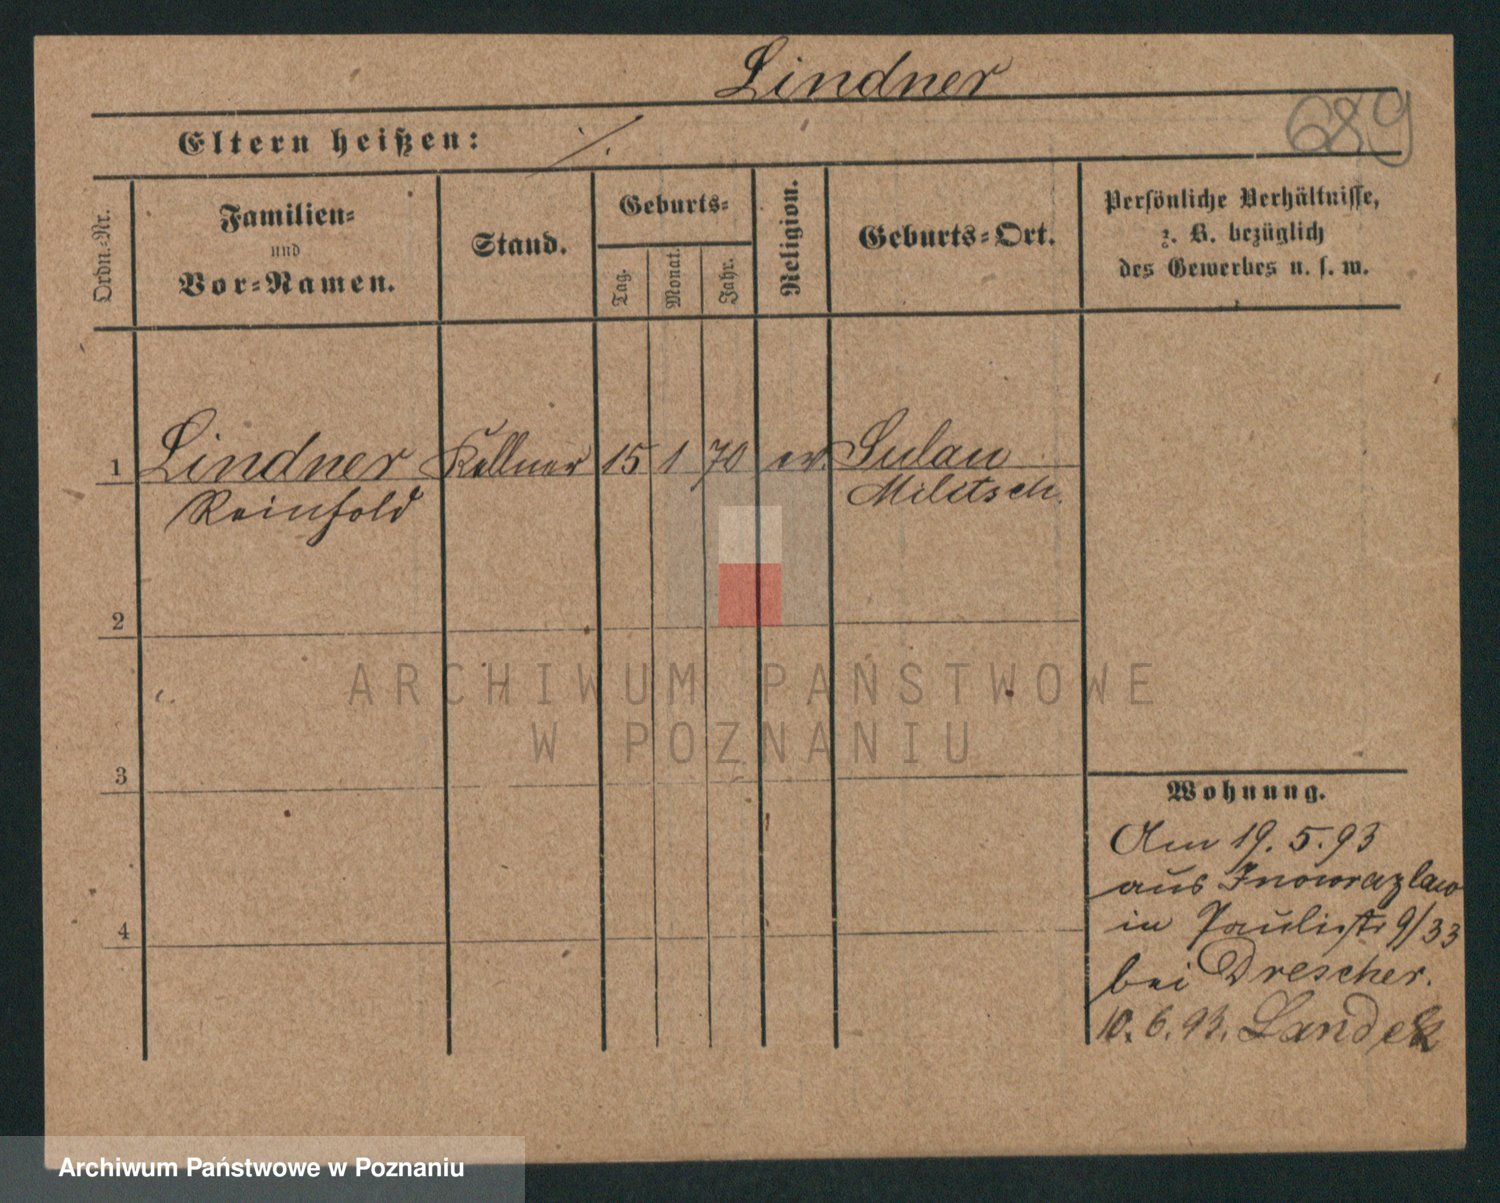 Lindner
689
Eltern heißen: ./.
Ordn.-Nr.
Familien-
und
Vor-Namen.
Stand.
Geburts-
Tag.
Monat.
Jahr.
Religion.
Geburts-Ort.
Persönliche Verhältnisse,
z. B. bezüglich
des Gewerbes u. s. w.
1 Lindner Kellner 15 1 70 ev. Sulau
Reinhold Militsch.
2
3
4
Wohnung.
Am 19.5.93
aus Inowrazlaw
in Paulistr 9/33
bei Drescher.
10.6.93. Landek
ARCHIWUM PAŃSTWOWE
W POZNANIU
Archiwum Państwowe w Poznaniu